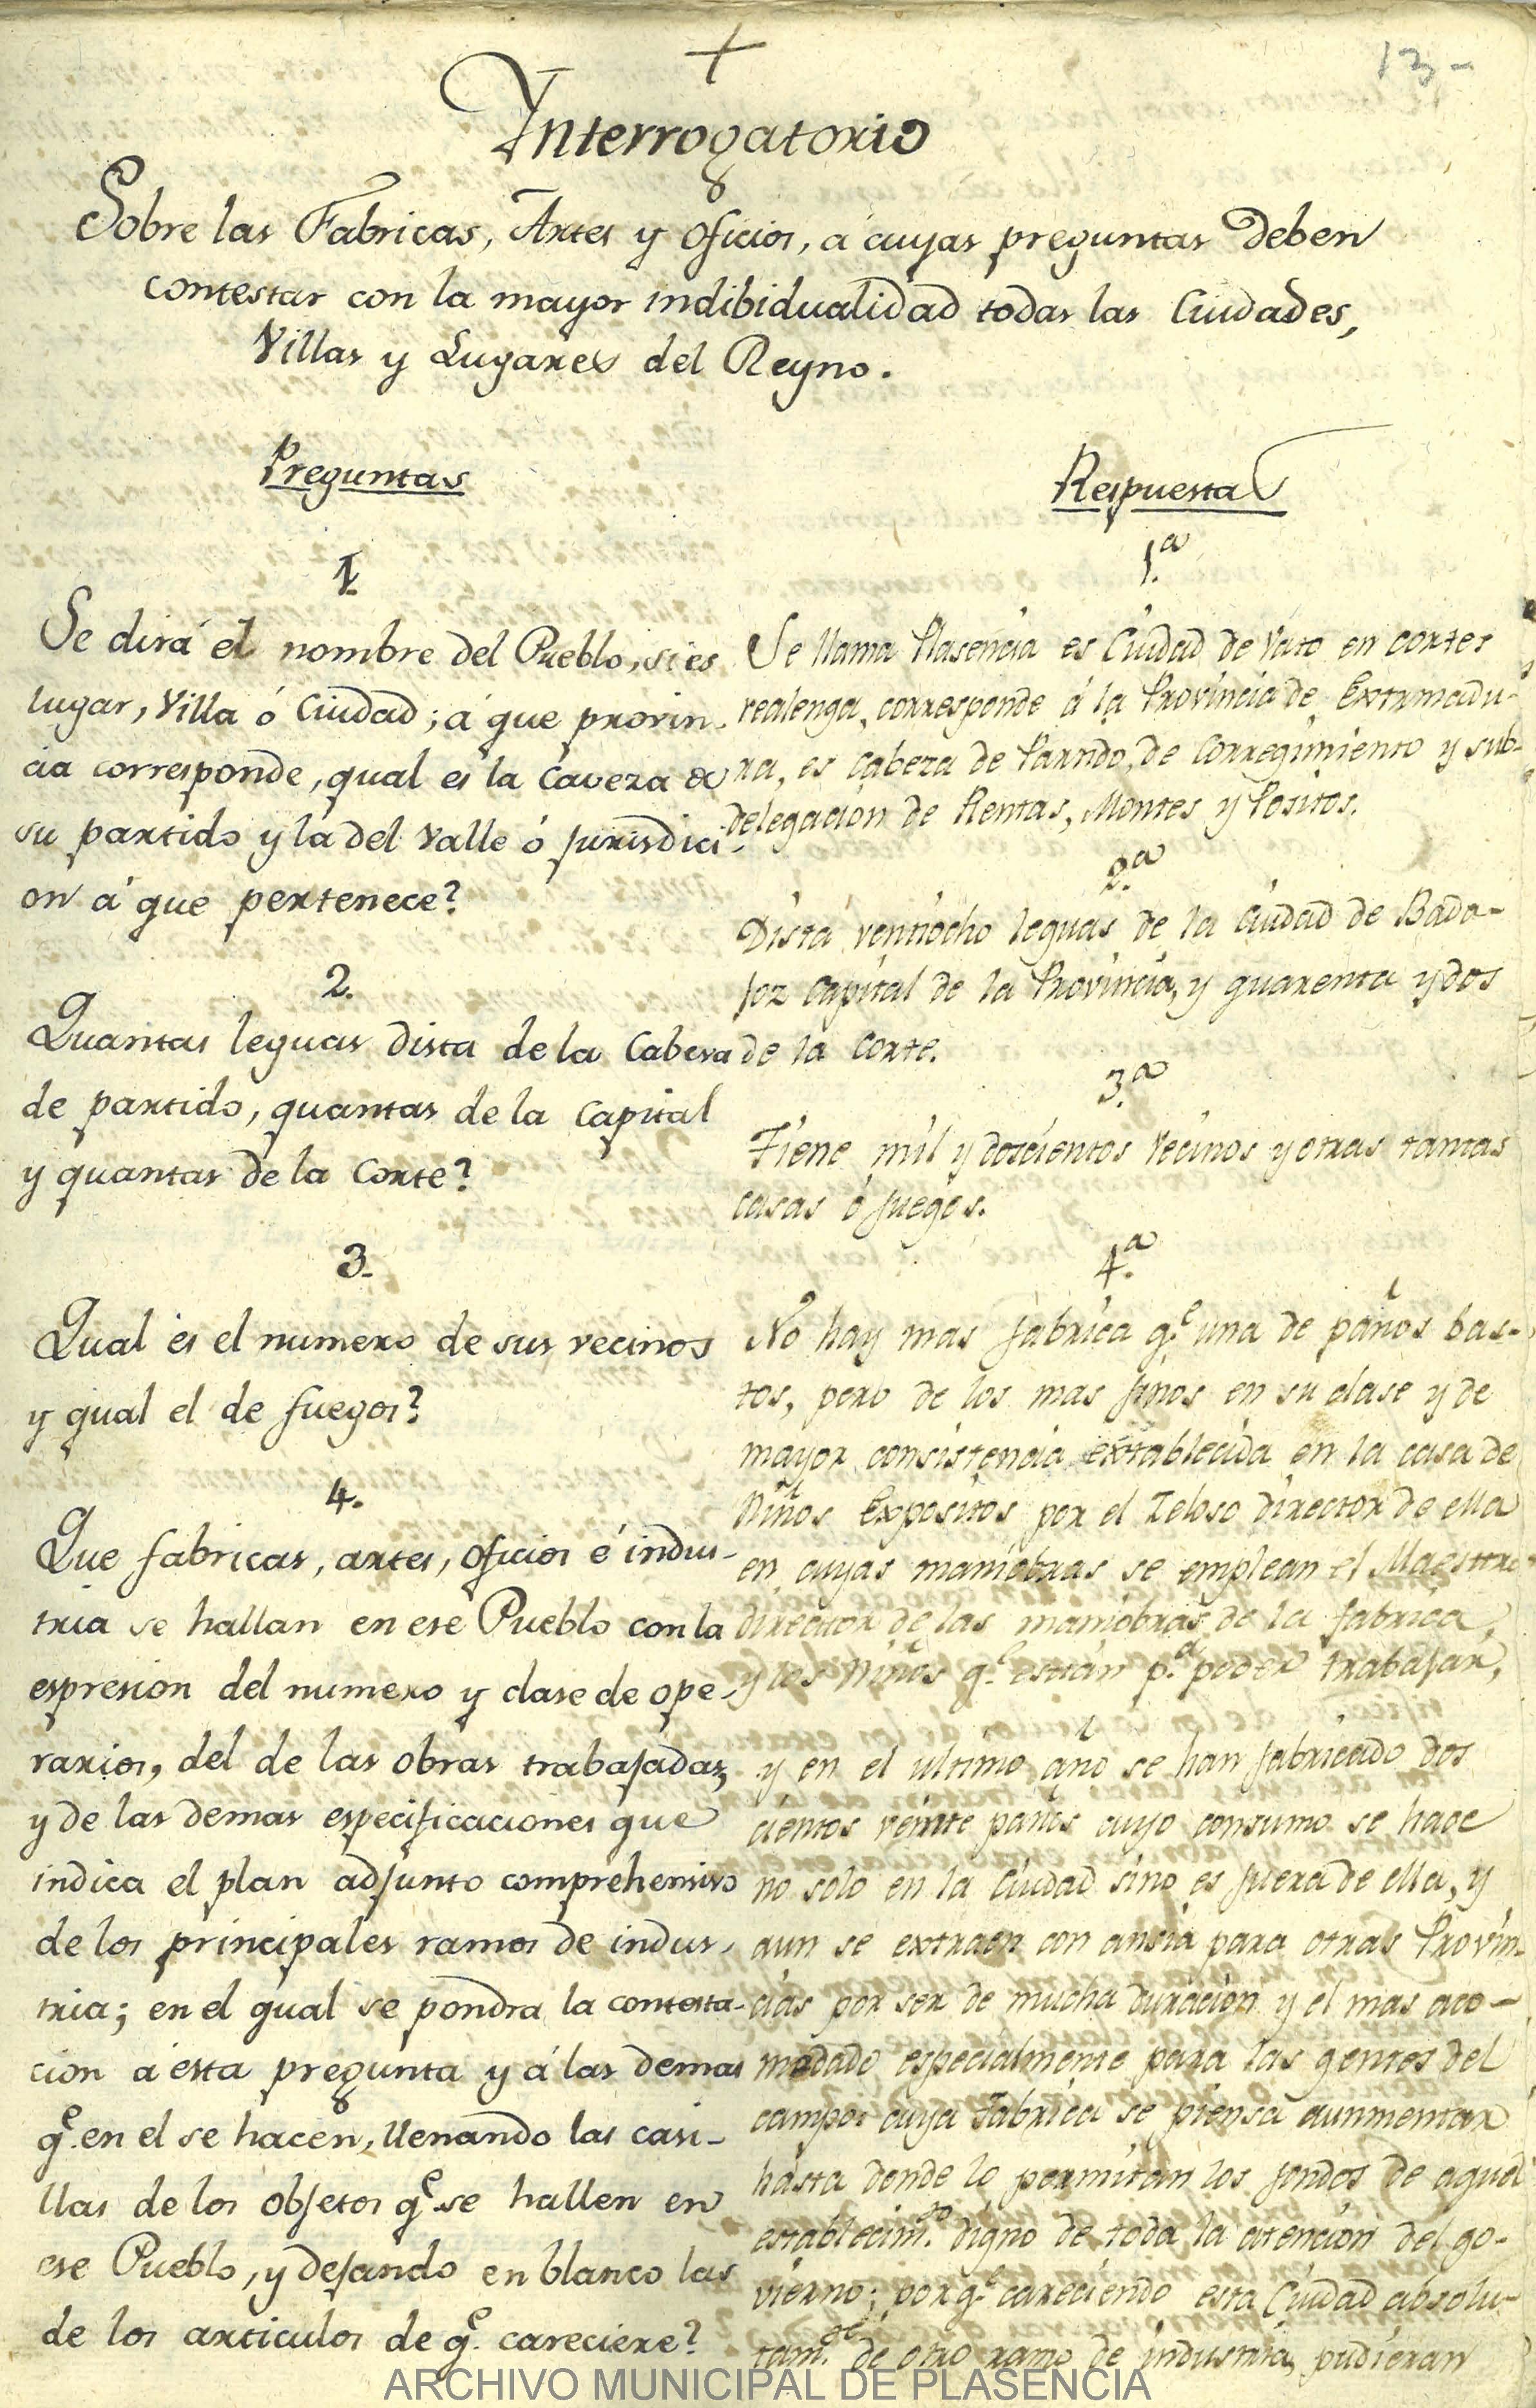 13-
Ynterrogatorio
Sobre las Fabricas, Artes y oficios, á cuyas preguntas deben
contestar con la mayor indibidualidad todas las Ciudades,
Villas y Lugares del Reyno.
Preguntas
1.
Se dirá el nombre del Pueblo, si es
lugar, Villa ó Ciudad; á que provin-
cia corresponde, qual es la Caveza de
su partido y la del Valle ó Jurisdici-
on á que pertenece?
2.
Quantas leguas dista de la Cabeza
de partido, quantas de la Capital
y quantas de la Corte?
3.
Qual es el numero de sus vecinos
y qual el de fuegos?
4.
Que fabricas, artes, oficios é indus-
tria se hallan en ese Pueblo con la
espresion del numero y clase de ope-
rarios, del de las obras trabajadas,
y de las demas especificaciones que
indica el plan adjunto comprehensivo
de los principales ramos de indus-
tria; en el qual se pondra la contesta-
cion á esta pregunta y á las demas
q.e en el se hacen, llenando las casi-
llas de los objetos q.e se hallen en
ese Pueblo, y dejando en blanco las
de los articulos de q.e careciere?
Respuestas
1.a
Se llama Plasencia es Ciudad de Voto en cortes
realenga, corresponde á la Provincia de Extrmadu-
ra, es Cabeza de Partido, de Corregimiento y sub-
delegacion de Rentas, Montes y Positos.
2.a
Dista ventiocho leguas de la Ciudad de Bada-
joz Capital de la Provincia, y quarenta y dos
de la Corte.
3.a
Tiene mil y doscientos Vecinos y otras tantas
casas ó fuegos.
4.a
No hay mas fabrica q.e una de paños bas-
tos, pero de los mas finos en su clase y de
mayor consistencia extablecida en la casa de
Niños Expositos por el Zeloso director de ella
en cuyas maniobras se emplean el Maestro
director de las maniobras de la fabrica,
y los Niños q.e están p.a poder trabajar,
y en el ultimo año se han fabricado dos
cientos veinte paños cuyo consumo se hace
no solo en la Ciudad sino es fuera de ella, y
aun se extraen con ansia para otras Provin-
cias por ser de mucha duracion y el mas aco-
modado especialmente para las gentes del
campo: cuya Fabrica se piensa aunmentar
hasta donde lo permitan los fondos de aquel
establecim.to digno de toda la atencion del go-
vierno; porq.e careciendo esta Ciudad absolu-
tam.te de otro ramo de industria, pudieran
ARCHIVO MUNICIPAL DE PLASENCIA